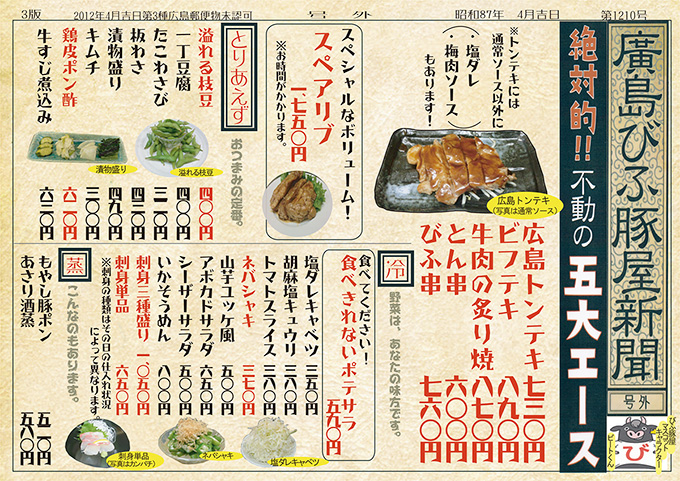 3版
2012年4月吉日第3種広島郵便物未認可
号外
昭和87年 4月吉日
第1210号
廣島びふ豚屋新聞
号外
びふ豚屋
マスコット
キャラクター
ビートくん
び
絶対的!!不動の五大エース
※トンテキには
通常ソース以外に
(・塩ダレ
・梅肉ソース)
もあります!
広島トンテキ
(写真は通常ソース)
広島トンテキ 七三〇円
ビフテキ 八九〇円
牛肉の炙り焼 八七〇円
とん串 六〇〇円
びふ串 七六〇円
スペシャルなボリューム!
スペアリブ
一、七五〇円
※お時間がかかります。
とりあえず
おつまみの定番。
溢れる枝豆 四〇〇円
一丁豆腐 四〇〇円
たこわさび 三一〇円
板わさ 四三〇円
漬物盛り 四九〇円
キムチ 三〇〇円
鶏皮ポン酢 六一〇円
牛すじ煮込み 六三〇円
漬物盛り
溢れる枝豆
冷
野菜は、あなたの味方です。
食べてください!
食べきれないポテサラ
五九〇円
塩ダレキャベツ 三五〇円
胡麻塩キュウリ 三八〇円
トマトスライス 三八〇円
ネバシャキ 三七〇円
山芋ユッケ風 五〇〇円
アボカドサラダ 六五〇円
シーザーサラダ 五五〇円
いかそうめん 八〇〇円
刺身三種盛り 一〇五〇円
刺身単品 六五〇円
※刺身の種類はその日の仕入れ状況
によって異なります。
刺身単品
(写真はカンパチ)
ネバシャキ
塩ダレキャベツ
蒸
こんなのもあります。
もやし豚ポン 五一〇円
あさり酒蒸 五八〇円